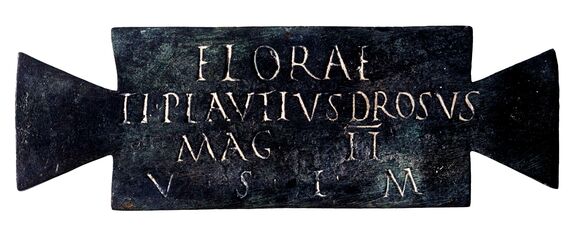 FLORAE
TI·PLAVTIVS DROSVS
MAG II
V S L M